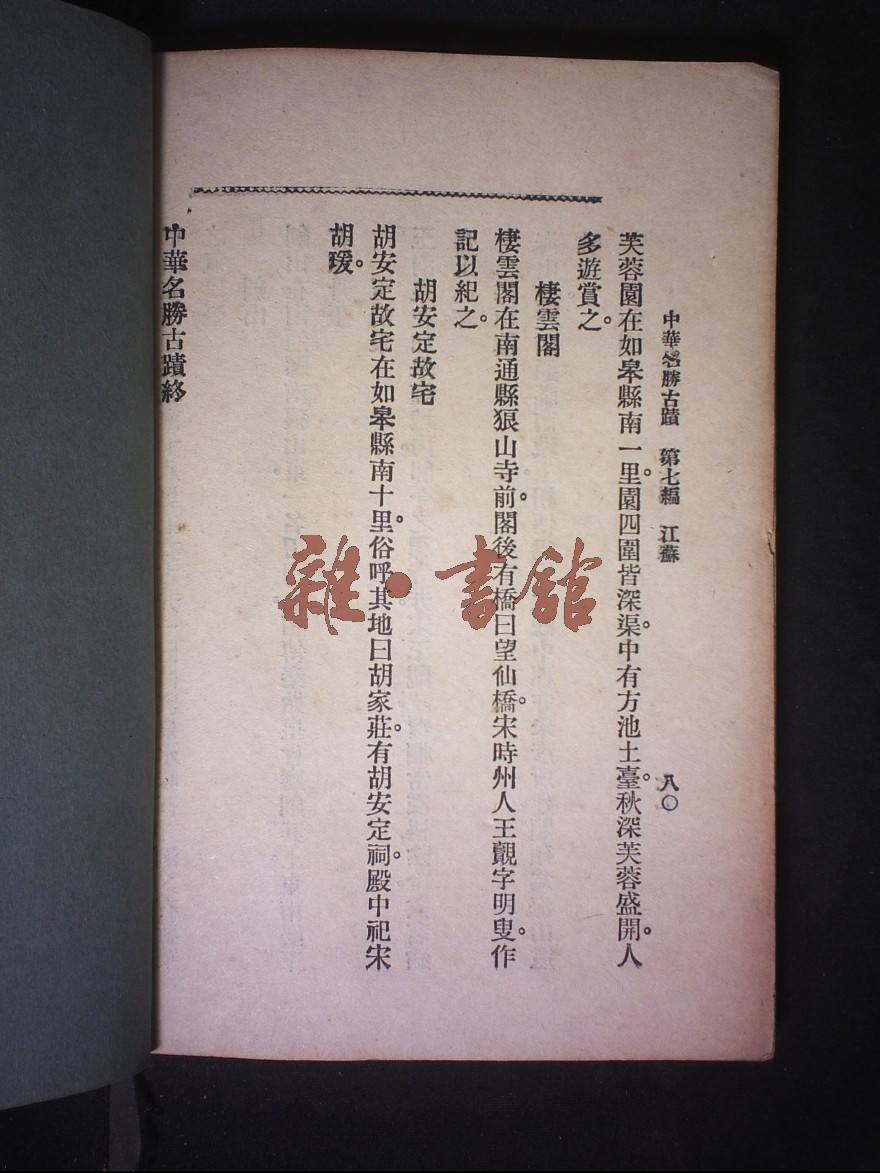 中華名勝古蹟　第七編　江蘇
八〇
芙蓉園在如皋縣南一里。園四圍皆深渠。中有方池土臺。秋深芙蓉盛開。人
多遊賞之。
棲雲閣
棲雲閣在南通縣狼山寺前。閣後有橋曰望仙橋。宋時州人王觀字明叟。作
記以紀之。
胡安定故宅
胡安定故宅在如皋縣南十里。俗呼其地曰胡家莊。有胡安定祠。殿中祀宋
胡瑗。
中華名勝古蹟終
雜·書館